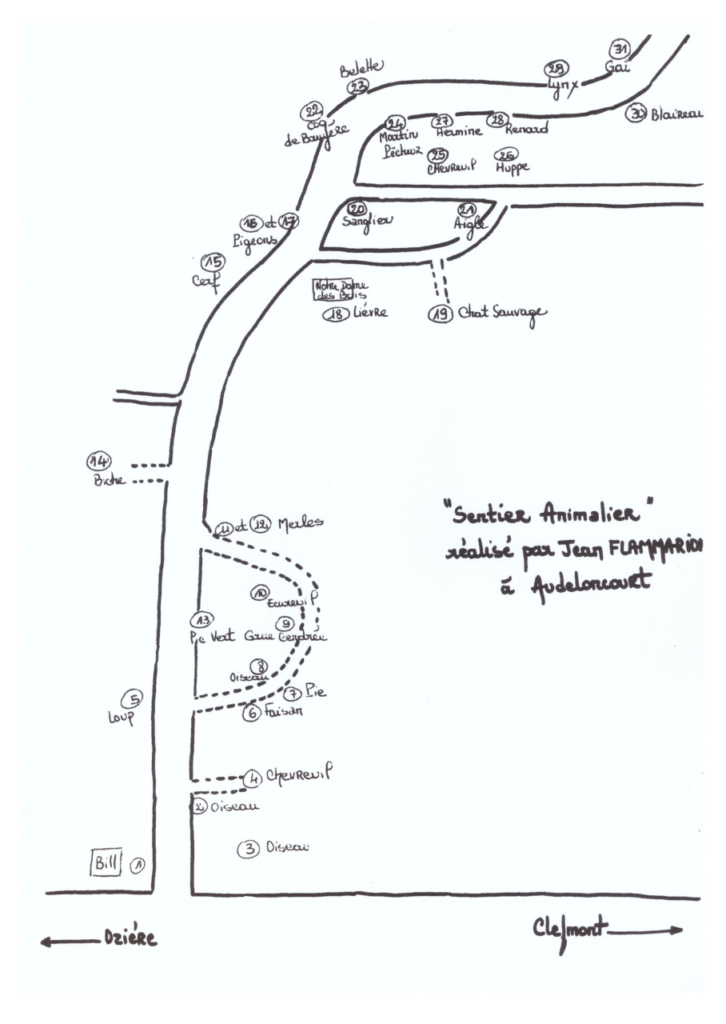 31
Gai
Belette
23
29
Lynx
22
Coq
de Bruyère
24
Martin
Pêcheur
27
Hermine
28
Renard
30 Blaireau
25
CHEVREUIL
26
Huppe
16 et 17
Pigeons
20
Sanglier
21
Aigle
15
Cerf
Notre Dame
des Bois
18 Lièvre
19 Chat Sauvage
14
Biche
"Sentier Animalier"
réalisé par Jean FLAMMARION
à Audeloncourt
11 et 12 Merles
10
Ecureuil
13
Pic Vert
9
Grue Cendrée
8
Oiseau
7 Pie
6 Faisan
5
Loup
4 Chevreuil
2 Oiseau
3 Oiseau
Bill 1
Ozière
Clefmont